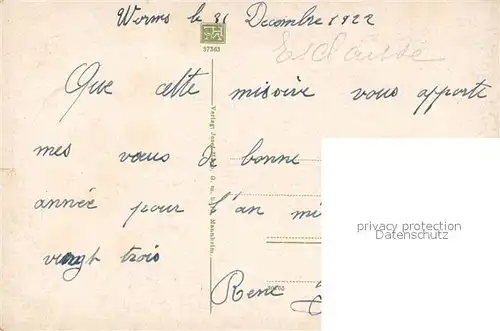 Worms le 31 Decembre 1922
37363
Que cette missive vous apporte
mes vœux de bonne
année pour l'an mi
vingt trois
René
privacy protection
Datenschutz